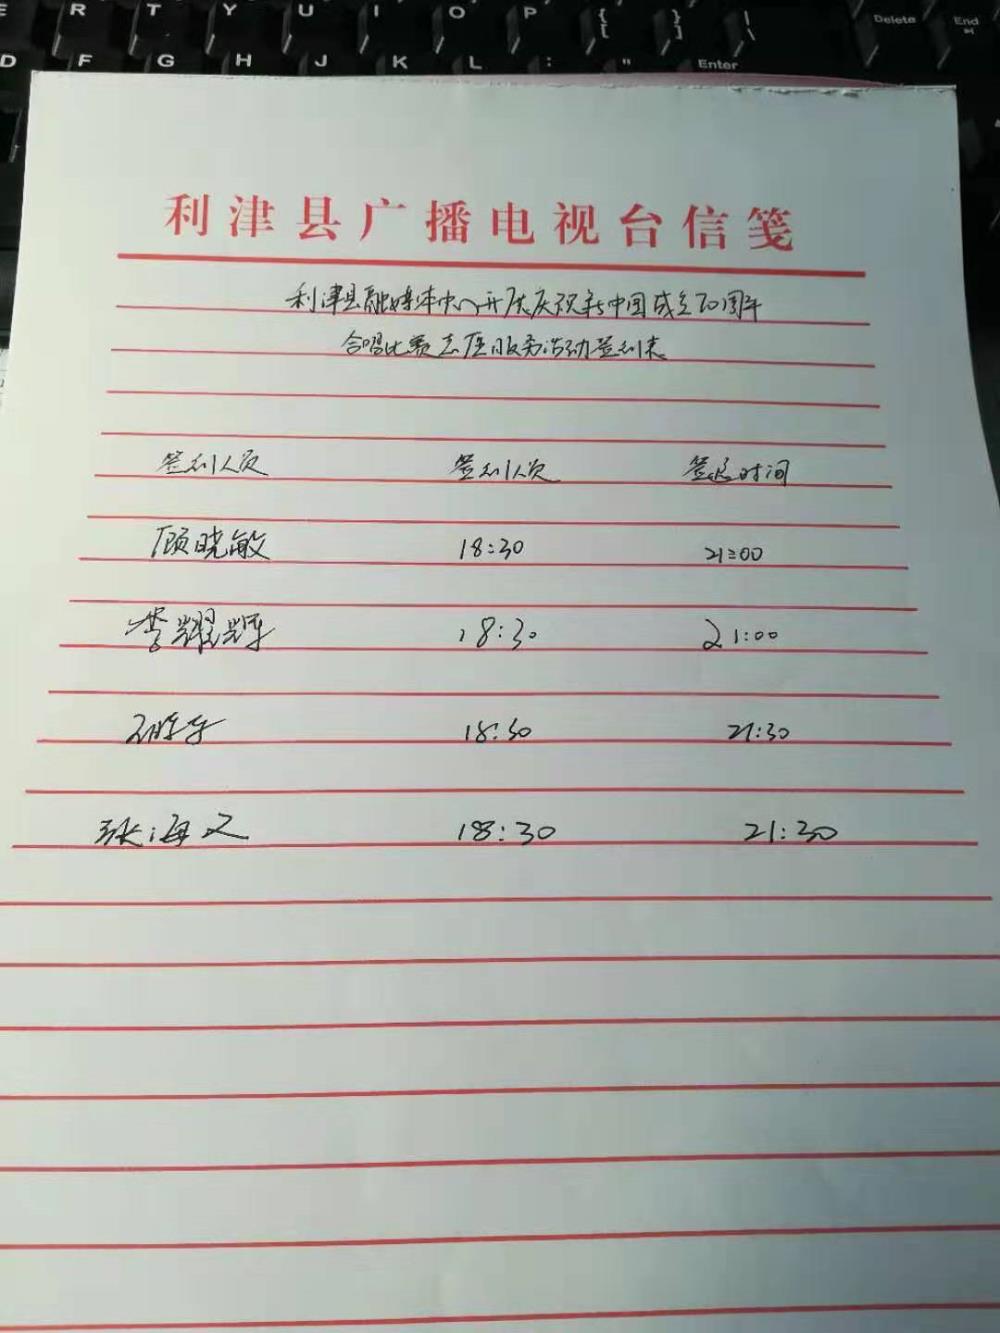 E R T Y U I O P { [ } ] | \ Delete End
D F G H J K L : " Enter
利津县广播电视台信笺
利津县融媒体中心开展庆祝新中国成立70周年
合唱比赛志愿服务活动签到表
签到人员 签到人次 签退时间
顾晓敏 18:30 21:00
李耀辉 18:30 21:00
18:30 21:30
张海文 18:30 21:30